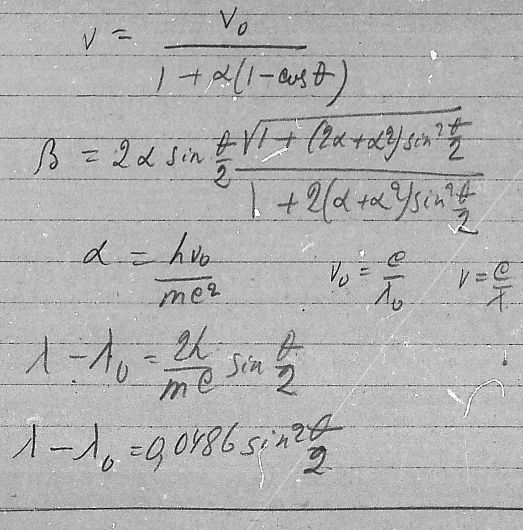 ν = ν₀ / (1 + α(1 - cos θ))
β = 2α sin θ/2 √(1 + (2α + α²) sin² θ/2) / (1 + 2(α + α²) sin² θ/2)
α = hν₀ / mc² ν₀ = c/λ₀ ν = c/λ
λ - λ₀ = 2h/mc sin θ/2
λ - λ₀ = 0,0486 sin² θ/2